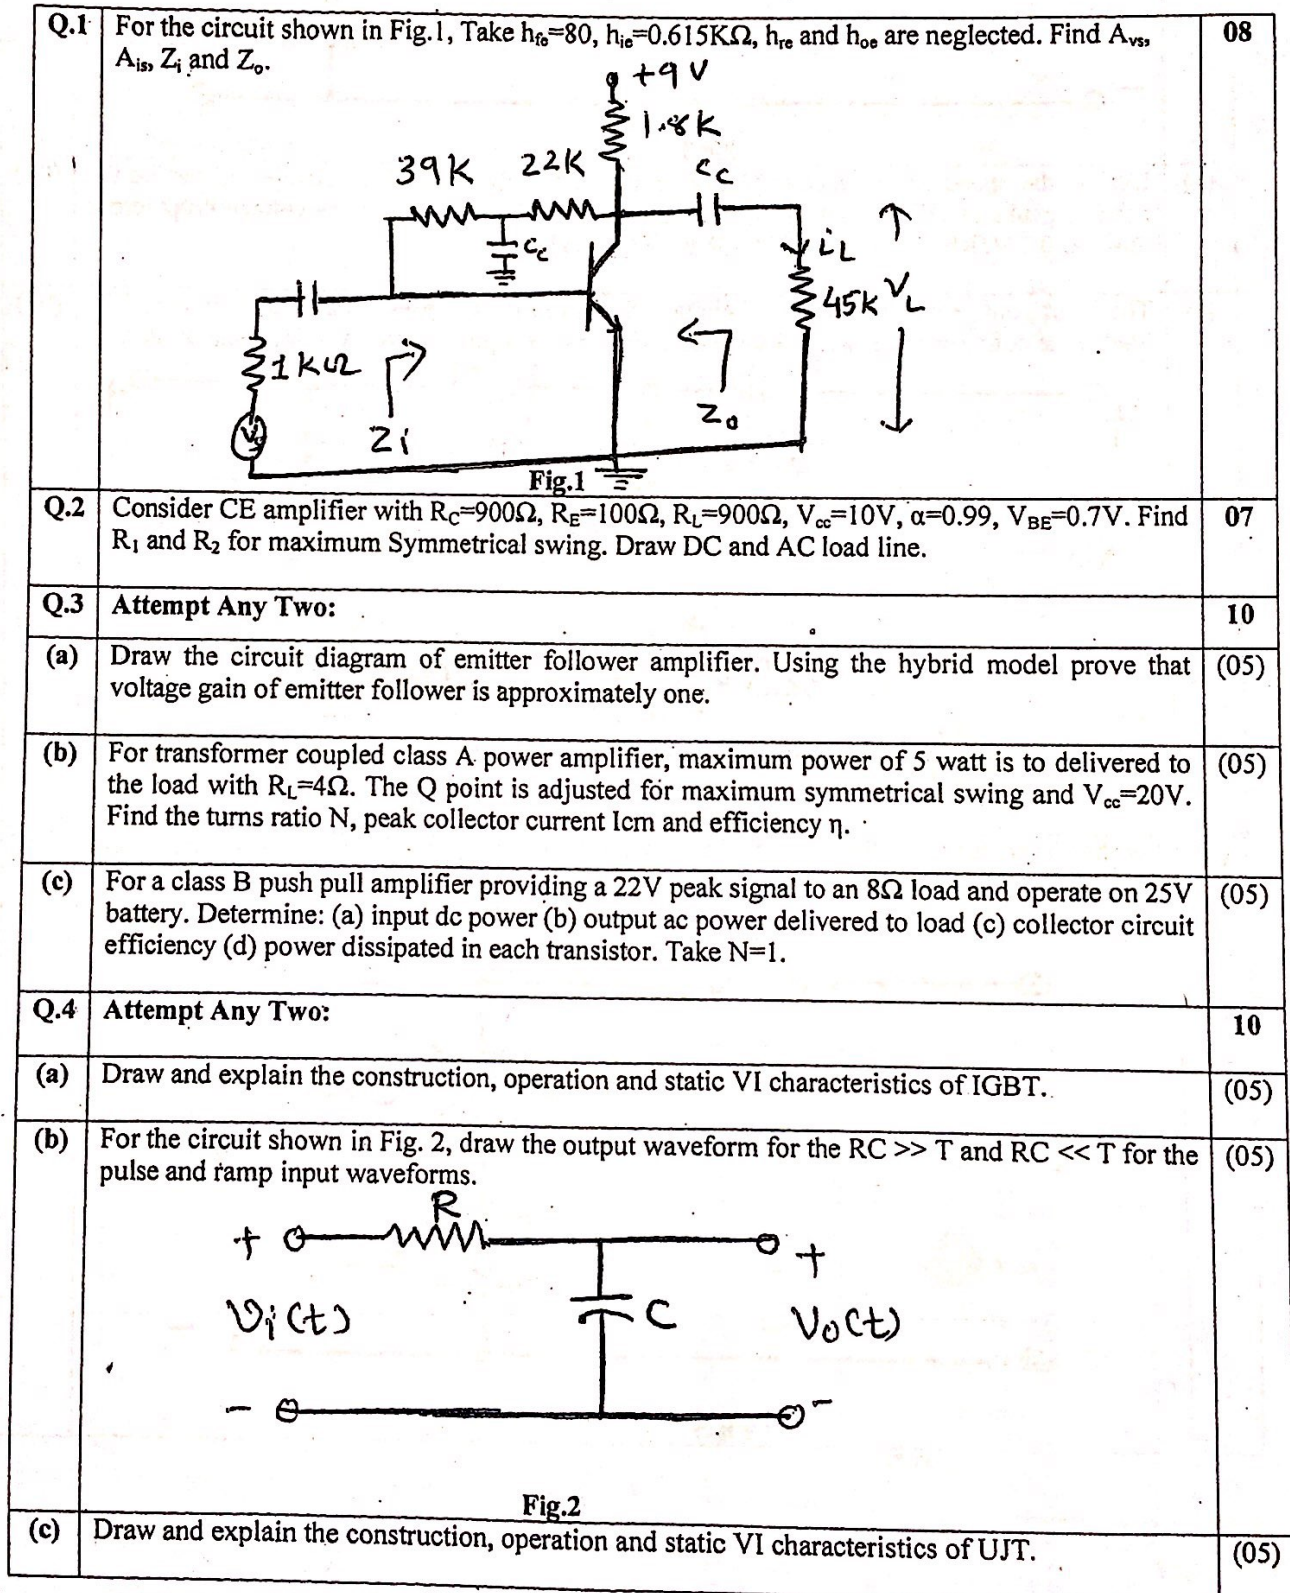 Q.1 For the circuit shown in Fig.1, Take hfe=80, hie=0.615KΩ, hre and hoe are neglected. Find Avs, 08
Ais, Zi and Zo.
+9 V
1.8K
39K 22K Cc
Cc
iL
45K VL
1kΩ
Zo
Vs
Zi
Fig.1
Q.2 Consider CE amplifier with RC=900Ω, RE=100Ω, RL=900Ω, Vcc=10V, α=0.99, VBE=0.7V. Find 07
R1 and R2 for maximum Symmetrical swing. Draw DC and AC load line.
Q.3 Attempt Any Two: 10
(a) Draw the circuit diagram of emitter follower amplifier. Using the hybrid model prove that (05)
voltage gain of emitter follower is approximately one.
(b) For transformer coupled class A power amplifier, maximum power of 5 watt is to delivered to (05)
the load with RL=4Ω. The Q point is adjusted for maximum symmetrical swing and Vcc=20V.
Find the turns ratio N, peak collector current Icm and efficiency η.
(c) For a class B push pull amplifier providing a 22V peak signal to an 8Ω load and operate on 25V (05)
battery. Determine: (a) input dc power (b) output ac power delivered to load (c) collector circuit
efficiency (d) power dissipated in each transistor. Take N=1.
Q.4 Attempt Any Two: 10
(a) Draw and explain the construction, operation and static VI characteristics of IGBT. (05)
(b) For the circuit shown in Fig. 2, draw the output waveform for the RC >> T and RC << T for the (05)
pulse and ramp input waveforms.
R
+ +
Vi(t) C Vo(t)
- -
Fig.2
(c) Draw and explain the construction, operation and static VI characteristics of UJT. (05)